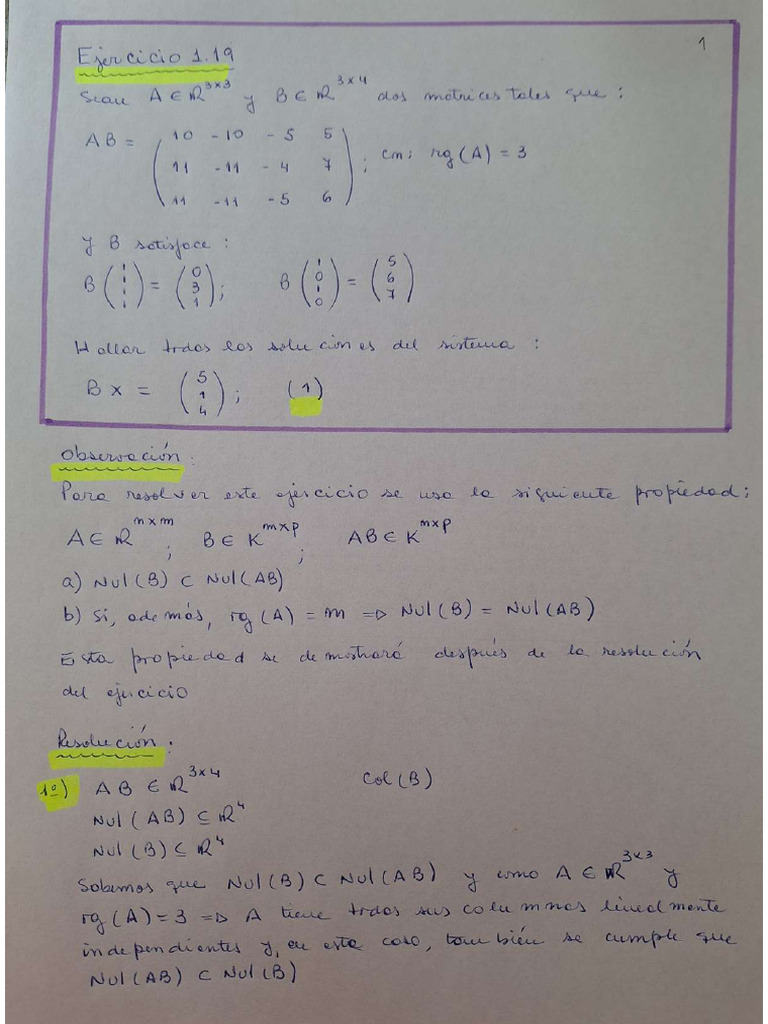 1
Ejercicio 1.19
Sean A ∈ ℝ^{3×3} y B ∈ ℝ^{3×4} dos matrices tales que :
AB = \begin{pmatrix} 10 & -10 & -5 & 5 \\ 11 & -11 & -4 & 7 \\ 11 & -11 & -5 & 6 \end{pmatrix} ; con rg (A) = 3
y B satisface :
B \begin{pmatrix} 1 \\ 1 \\ 1 \\ 1 \end{pmatrix} = \begin{pmatrix} 0 \\ 3 \\ 1 \end{pmatrix} ; B \begin{pmatrix} 1 \\ 0 \\ 1 \\ 0 \end{pmatrix} = \begin{pmatrix} 5 \\ 6 \\ 7 \end{pmatrix}
Hallar todas las soluciones del sistema :
B x = \begin{pmatrix} 5 \\ 1 \\ 4 \end{pmatrix} ; (1)
Observación :
Para resolver este ejercicio se usa la siguiente propiedad ;
A ∈ ℝ^{n×m} ; B ∈ K^{m×p} ; AB ∈ K^{m×p}
a) Nul (B) ⊂ Nul (AB)
b) Si, además, rg (A) = m ⇒ Nul (B) = Nul (AB)
Esta propiedad se demostrará después de la resolución
del ejercicio
Resolución :
1º) AB ∈ ℝ^{3×4} Col (B)
Nul (AB) ⊆ ℝ^4
Nul (B) ⊆ ℝ^4
Sabemos que Nul (B) ⊂ Nul (AB) y como A ∈ ℝ^{3×3} y
rg (A) = 3 ⇒ A tiene todas sus columnas linealmente
independientes y, en este caso, también se cumple que
Nul (AB) ⊂ Nul (B)